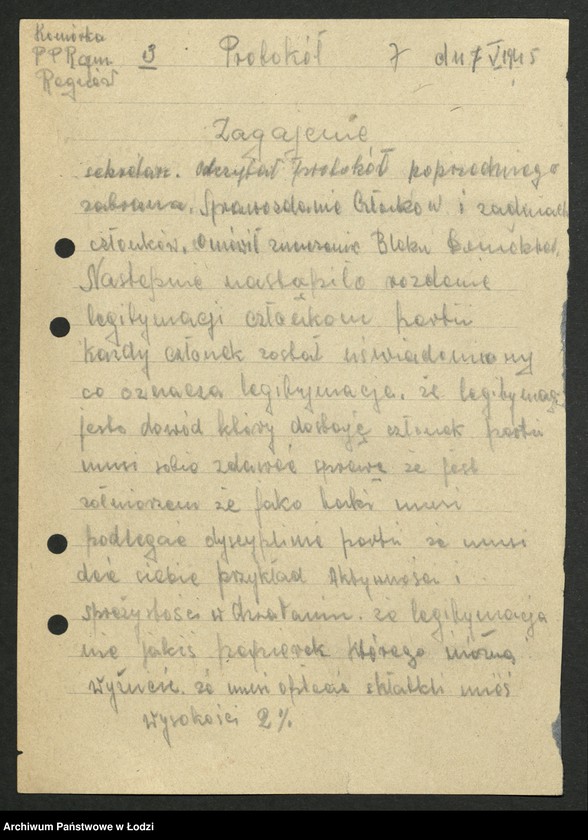 Komórka
PPR gm. 3 Protokół 7 dn 7 V 1945
Regnów
Zagajenie
sekretar. odczytał Protokół poprzedniego
zabrania. Sprawozdanie Członków i zadaniach
członków. Omówił znaczenie Bloku Demokrat.
Następnie nastąpiło rozdanie
legitymacji członkom partii
Każdy członek został uświadomiony
co oznacza legitymacja. że legitymacja
jesto dowód który dostaję członek partii
musi sobie zdawać sprawę że jest
żołnierzem że jako taki musi
podlegać dyscyplinie partii że musi
dać siebie przykład Aktywności i
sprężystości w Działaniu. że legitymacja
nie jakiś papierek którego można
wyrzucić. że musi opłacać składki
wysokości 2%
Archiwum Państwowe w Łodzi